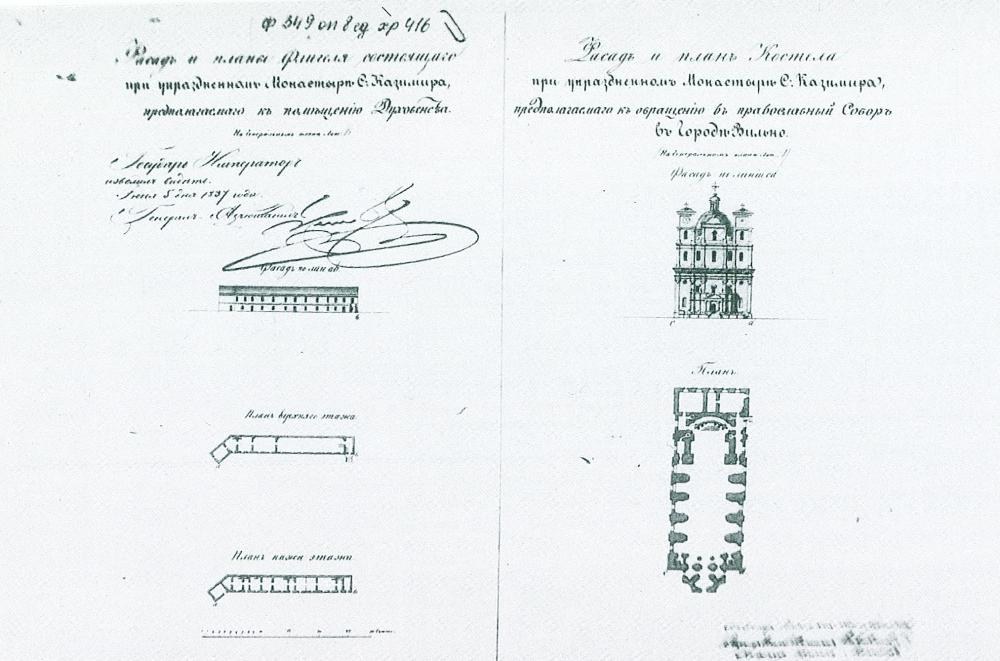 ф 349 оп 8 ед хр 416
Фасадъ и планы флигеля состоящаго
при упраздненномъ Монастырѣ С: Казимира,
предполагаемаго къ помѣщенію Духовенства.
На генеральномъ планѣ Лит.
Государь Императоръ
изволилъ видѣть.
Іюня 5 дня 1837 года.
Генералъ-Адъютантъ
Фасадъ по лин: ав.
Планъ верхняго этажа
Планъ нижн: этажа
Фасадъ и планъ Костела
при упраздненномъ Монастырѣ С: Казимира,
предполагаемаго къ обращенію въ православный Соборъ
въ Городѣ Вильно.
(На генеральномъ планѣ Лит.
Фасадъ по линіи са
с а
Планъ.